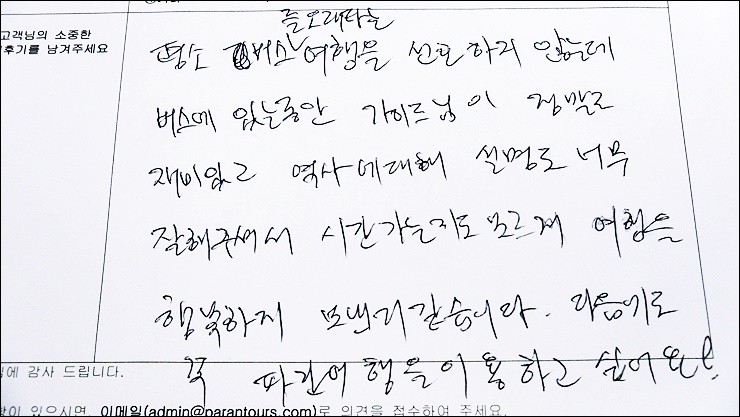 고객님의 소중한
후기를 남겨주세요
를오래타는
평소 버스여행을 선호하지 않는데
버스에 있는동안 가이드님이 정말로
재미있고 역사에대해 설명도 너무
잘해주셔서 시간가는지도 모르게 여행을
행복하게 보낸거같습니다. 다음에도
꼭 파란여행을이용하고 싶어요!
에 감사 드립니다.
있으시면, 이메일(admin@parantours.com)로 의견을 접수하여 주세요.